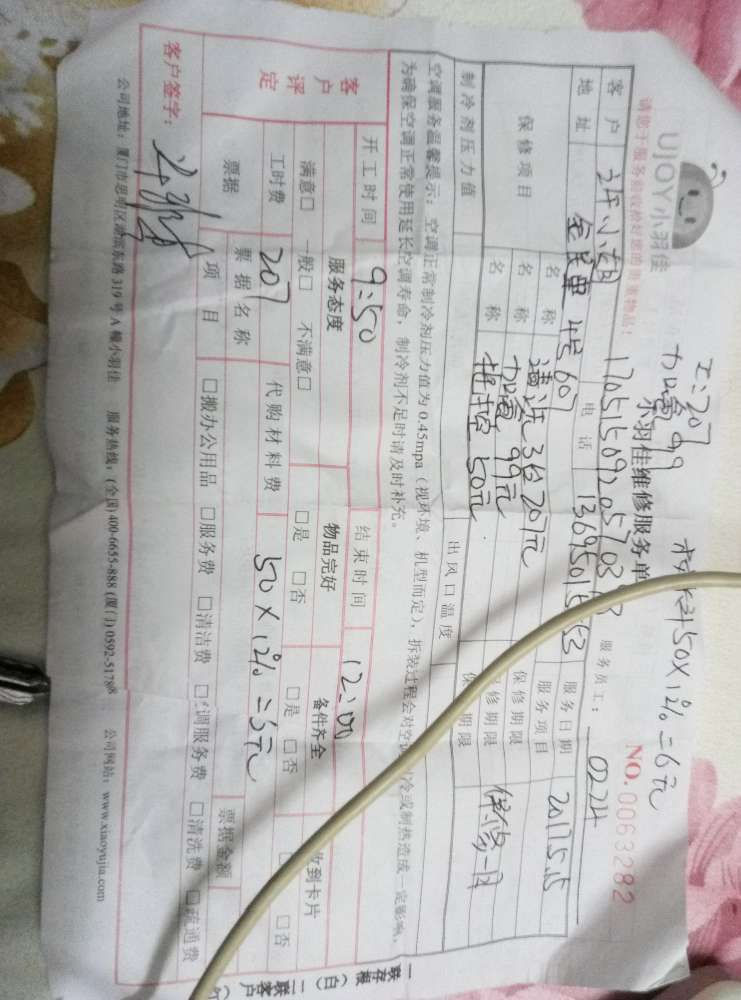 工:207
加氟99 材料50×12%=6元
UJOY小羽佳
小羽佳维修服务单
NO.0063282
请您于服务前收检好您的贵重物品!
服务员工: 0224
客户 小姐 电话
服务日期 2017.5.15
地址 607
服务项目
保修项目 名称 清洗3台207元 保修期限
名称 加氟99元 保修期限 保修一月
名称 50元 期限
制冷剂压力值 出风口温度
空调服务温馨提示:空调正常制冷剂压力值为0.45mpa(视环境、机型而定),拆装过程会对空 制冷或制热造成一定影响,
为确保空调正常使用延长空调寿命,制冷剂不足时请及时补充。
开工时间 9:50 结束时间 12:00
客户评定 服务态度 物品完好 备件齐全 收到卡片
满意□ 一般□ 不满意□ □是 □否 □是 □否 □否
工时费 207 代购材料费 50×12%=6元
票据 票据名称 票据金额
项目 □搬办公用品 □服务费 □清洁费 □空调服务费 □清洗费 □疏通费
客户签字:
公司地址:厦门市思明区湖滨东路319号A幢小羽佳 服务热线:(全国)400-6655-888 (厦门)0592-5178 公司网站:www.xiaoyujia.com
一联存根(白) 二联客户(